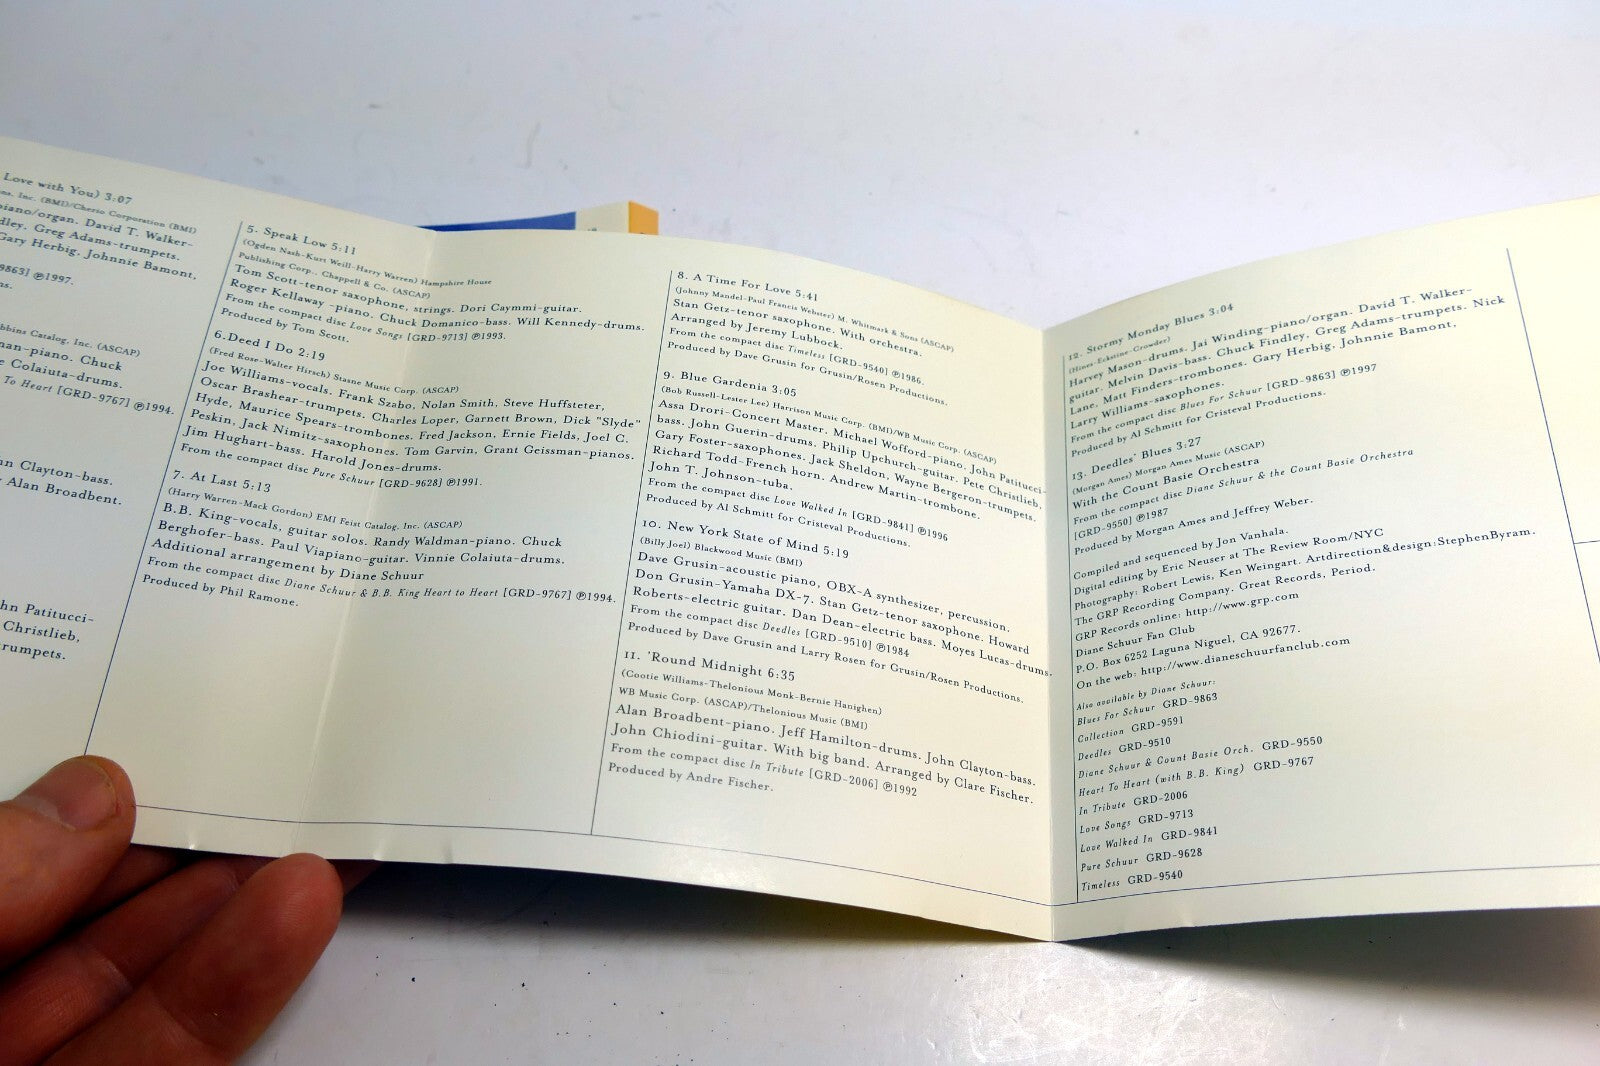 Love with You) 3:07
Inc. (BMI)/Cherio Corporation (BMI)
piano/organ. David T. Walker-
Greg Adams-trumpets.
Gary Herbig, Johnnie Bamont,
9863] ℗1997.
Catalog, Inc. (ASCAP)
piano. Chuck
Colaiuta-drums.
To Heart [GRD-9767] ℗1994.
Clayton-bass.
Alan Broadbent.
Patitucci-
Christlieb,
trumpets.
5. Speak Low 5:11
(Ogden Nash-Kurt Weill-Harry Warren) Hampshire House
Publishing Corp., Chappell & Co. (ASCAP)
Tom Scott-tenor saxophone, strings. Dori Caymmi-guitar.
Roger Kellaway -piano. Chuck Domanico-bass. Will Kennedy-drums.
From the compact disc Love Songs [GRD-9713] ℗1993.
Produced by Tom Scott.
6.Deed I Do 2:19
(Fred Rose-Walter Hirsch) Stasne Music Corp. (ASCAP)
Joe Williams-vocals. Frank Szabo, Nolan Smith, Steve Huffsteter,
Oscar Brashear-trumpets. Charles Loper, Garnett Brown, Dick "Slyde"
Hyde, Maurice Spears-trombones. Fred Jackson, Ernie Fields, Joel C.
Peskin, Jack Nimitz-saxophones. Tom Garvin, Grant Geissman-pianos.
Jim Hughart-bass. Harold Jones-drums.
From the compact disc Pure Schuur [GRD-9628] ℗1991.
7. At Last 5:13
(Harry Warren-Mack Gordon) EMI Feist Catalog, Inc. (ASCAP)
B.B. King-vocals, guitar solos. Randy Waldman-piano. Chuck
Berghofer-bass. Paul Viapiano-guitar. Vinnie Colaiuta-drums.
Additional arrangement by Diane Schuur
From the compact disc Diane Schuur & B.B. King Heart to Heart [GRD-9767] ℗1994.
Produced by Phil Ramone.
8. A Time For Love 5:41
(Johnny Mandel-Paul Francis Webster) M. Whitmark & Sons (ASCAP)
Stan Getz-tenor saxophone. With orchestra.
Arranged by Jeremy Lubbock.
From the compact disc Timeless [GRD-9540] ℗1986.
Produced by Dave Grusin for Grusin/Rosen Productions.
9. Blue Gardenia 3:05
(Bob Russell-Lester Lee) Harrison Music Corp. (BMI)/WB Music Corp. (ASCAP)
Assa Drori-Concert Master, Michael Wofford-piano. John Patitucci-
bass. John Guerin-drums. Philip Upchurch-guitar. Pete Christlieb,
Gary Foster-saxophones. Jack Sheldon, Wayne Bergeron-trumpets.
Richard Todd-French horn. Andrew Martin-trombone.
John T. Johnson-tuba.
From the compact disc Love Walked In [GRD-9841] ℗1996
Produced by Al Schmitt for Cristeval Productions.
10. New York State of Mind 5:19
(Billy Joel) Blackwood Music (BMI)
Dave Grusin-acoustic piano, OBX-A synthesizer, percussion.
Don Grusin-Yamaha DX-7. Stan Getz-tenor saxophone. Howard
Roberts-electric guitar. Dan Dean-electric bass. Moyes Lucas-drums.
From the compact disc Deedles [GRD-9510] ℗1984
Produced by Dave Grusin and Larry Rosen for Grusin/Rosen Productions.
11. 'Round Midnight 6:35
(Cootie Williams-Thelonious Monk-Bernie Hanighen)
WB Music Corp. (ASCAP)/Thelonious Music (BMI)
Alan Broadbent-piano. Jeff Hamilton-drums. John Clayton-bass.
John Chiodini-guitar. With big band. Arranged by Clare Fischer.
From the compact disc In Tribute [GRD-2006] ℗1992
Produced by Andre Fischer.
12. Stormy Monday Blues 3:04
(Hines-Eckstine-Crowder)
Harvey Mason-drums. Jai Winding-piano/organ. David T. Walker-
guitar. Melvin Davis-bass. Chuck Findley, Greg Adams-trumpets. Nick
Lane, Matt Finders-trombones. Gary Herbig, Johnnie Bamont,
Larry Williams-saxophones.
From the compact disc Blues For Schuur [GRD-9863] ℗1997
Produced by Al Schmitt for Cristeval Productions.
13. Deedles' Blues 3:27
(Morgan Ames) Morgan Ames Music (ASCAP)
With the Count Basie Orchestra
From the compact disc Diane Schuur & the Count Basie Orchestra
[GRD-9550] ℗1987
Produced by Morgan Ames and Jeffrey Weber.
Compiled and sequenced by Jon Vanhala.
Digital editing by Eric Neuser at The Review Room/NYC
Photography: Robert Lewis, Ken Weingart. Artdirection&design:StephenByram.
The GRP Recording Company. Great Records, Period.
GRP Records online: http://www.grp.com
Diane Schuur Fan Club
P.O. Box 6252 Laguna Niguel, CA 92677.
On the web: http://www.dianeschuurfanclub.com
Also available by Diane Schuur:
Blues For Schuur GRD-9863
Collection GRD-9591
Deedles GRD-9510
Diane Schuur & Count Basie Orch. GRD-9550
Heart To Heart (with B.B. King) GRD-9767
In Tribute GRD-2006
Love Songs GRD-9713
Love Walked In GRD-9841
Pure Schuur GRD-9628
Timeless GRD-9540